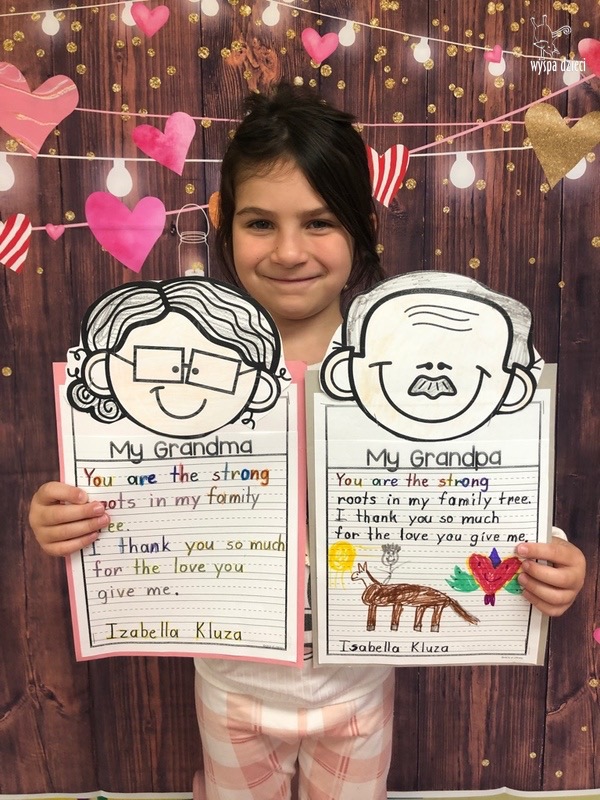 wyspa dzieci
My Grandma
You are the strong
roots in my family
ee.
I thank you so much
for the love you
give me.
Izabella Kluza
My Grandpa
You are the strong
roots in my family tree.
I thank you so much
for the love you give me.
Izabella Kluza